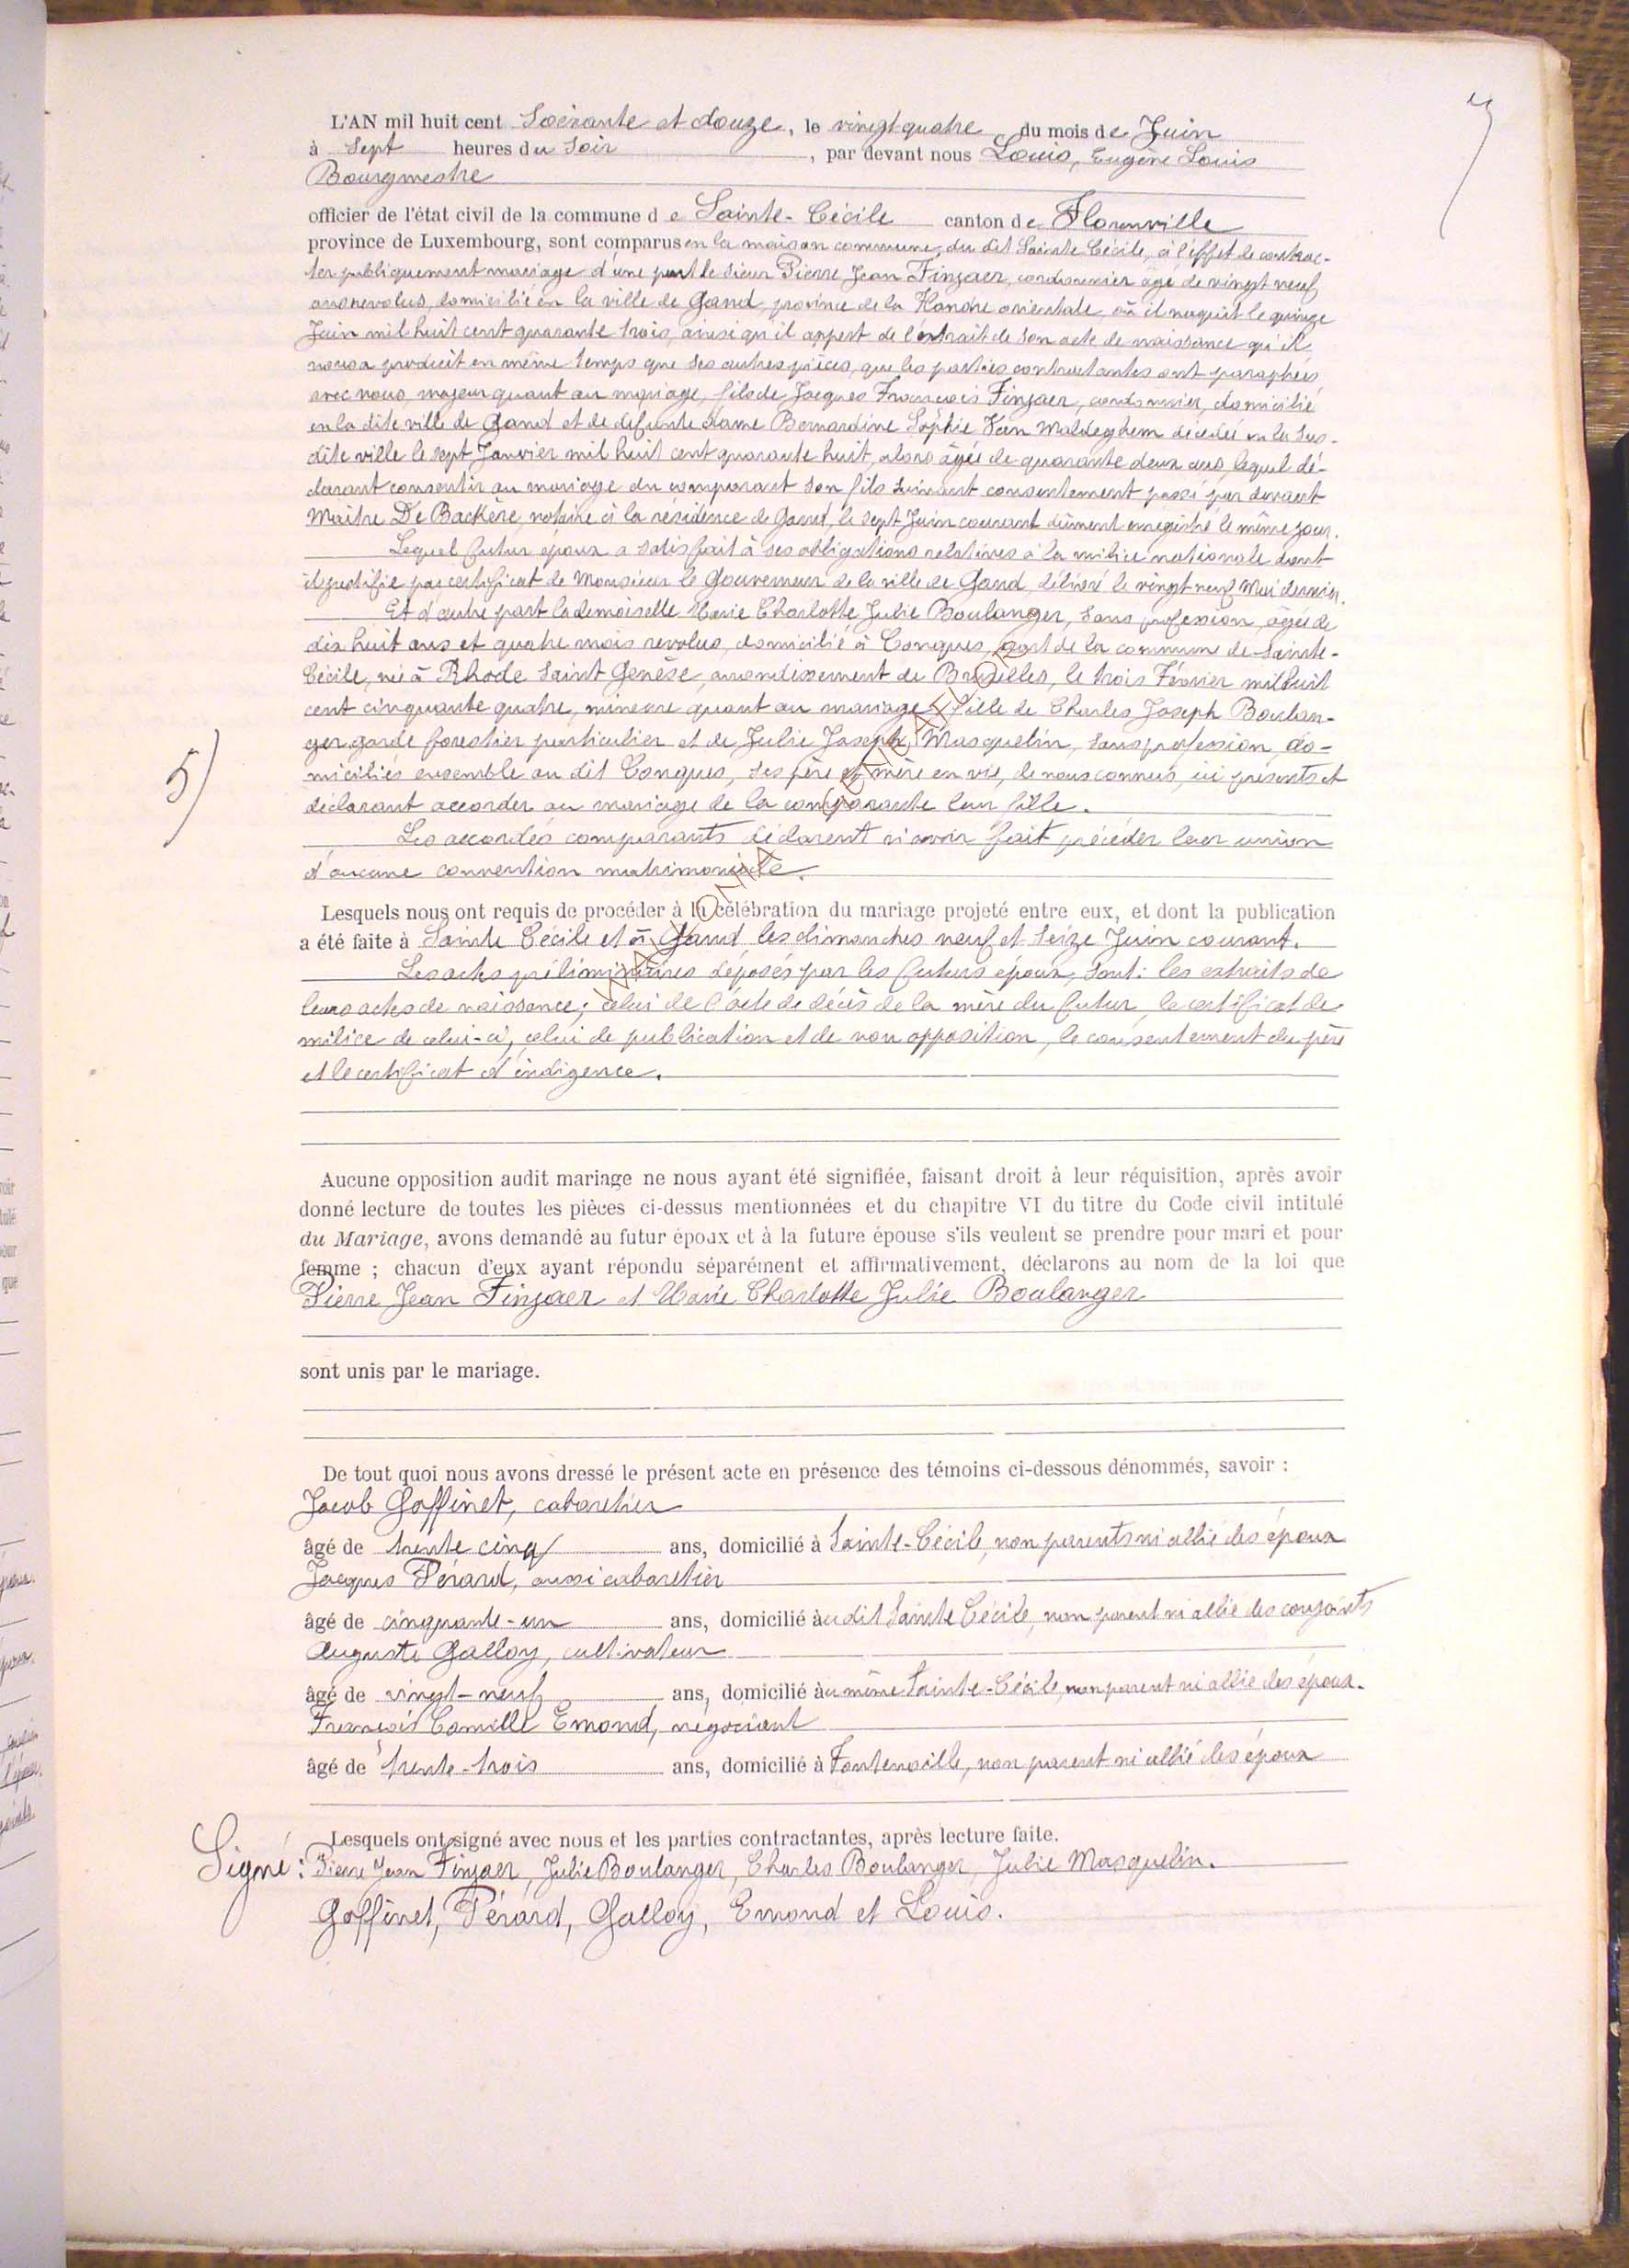 L'AN mil huit cent Soixante et douze, le vingt quatre du mois de Juin
à Sept heures du Soir, par devant nous Louis, Eugène Louis
Bourgmestre
officier de l'état civil de la commune de Sainte-Cécile canton de Florenville
province de Luxembourg, sont comparus en la maison commune, du dit Sainte Cécile, à l'effet de contrac-
ter publiquement mariage d'une part le sieur Pierre Jean Finjaer, cordonnier âgé de vingt neuf
ans revolus, domicilié en la ville de Gand, province de la Flandre orientale, où il naquit le quinze
Juin mil huit cent quarante trois, ainsi qu'il appert de l'extrait de son acte de naissance qu'il
nous a produit en même temps que ses autres pièces, que les parties contractantes ont paraphées
avec nous, majeur quant au mariage, fils de Jacques François Finjaer, cordonnier, domicilié
en la dite ville de Gand et de defunte dame Bernardine Sophie Van Maldeghem décédée en la sus-
dite ville le sept Janvier mil huit cent quarante huit, alors âgée de quarante deux ans, lequel dé-
clarant consentir au mariage du comparant son fils suivant consentement passé par devant
Maître De Backere, notaire à la résidence de Gand, le sept Juin courant dûment enregistré le même jour.
Lequel futur époux a satisfait à ses obligations relatives à la milice nationale dont
il justifie par certificat de Monsieur le Gouverneur de la ville de Gand, délivré le vingt neuf Mai dernier.
Et d'autre part la demoiselle Marie Charlotte Julie Boulanger, sans profession, âgée de
dix huit ans et quatre mois revolus, domicilié à Conques, de la commune de Sainte-
Cécile, née à Rhode Saint Genèse, arrondissement de Bruxelles, le trois Février mil huit
cent cinquante quatre, mineure quant au mariage, fille de Charles Joseph Boulan-
ger garde forestier particulier et de Julie Joseph Masquelin, sans profession, do-
miciliés ensemble au dit Conques, ses père et mère en vie, de nous connus, ici présents et
déclarant accorder au mariage de la comparante leur fille.
5)
Les accordés comparants déclarent n'avoir fait précéder leur union
d'aucune convention matrimoniale.
Lesquels nous ont requis de procéder à la célébration du mariage projeté entre eux, et dont la publication
a été faite à Sainte Cécile et à Gand les dimanches neuf et seize Juin courant.
Les actes préliminaires déposés par les futurs époux, sont: les extraits de
leurs actes de naissance; celui de l'acte de décès de la mère du futur, le certificat de
milice de celui-ci, celui de publication et de non opposition, le consentement du père
et le certificat d'indigence.
Aucune opposition audit mariage ne nous ayant été signifiée, faisant droit à leur réquisition, après avoir
donné lecture de toutes les pièces ci-dessus mentionnées et du chapitre VI du titre du Code civil intitulé
du Mariage, avons demandé au futur époux et à la future épouse s'ils veulent se prendre pour mari et pour
femme ; chacun d'eux ayant répondu séparément et affirmativement, déclarons au nom de la loi que
Pierre Jean Finjaer et Marie Charlotte Julie Boulanger
sont unis par le mariage.
De tout quoi nous avons dressé le présent acte en présence des témoins ci-dessous dénommés, savoir :
Jacob Goffinet, cabaretier
âgé de trente cinq ans, domicilié à Sainte-Cécile, non parents ni allié des époux
Jacques Pérard, aussi cabaretier
âgé de cinquante-un ans, domicilié au dit Sainte Cécile, non parent ni allié des conjoints
Auguste Galloy, cultivateur
âgé de vingt-neuf ans, domicilié au même Sainte-Cécile, non parent ni allié des époux.
François Camille Emond, négociant
âgé de trente-trois ans, domicilié à Fontenoille, non parent ni allié des époux
Lesquels ont signé avec nous et les parties contractantes, après lecture faite.
Signé : Pierre Jean Finjaer, Julie Boulanger, Charles Boulanger, Julie Masquelin.
Goffinet, Pérard, Galloy, Emond et Louis.